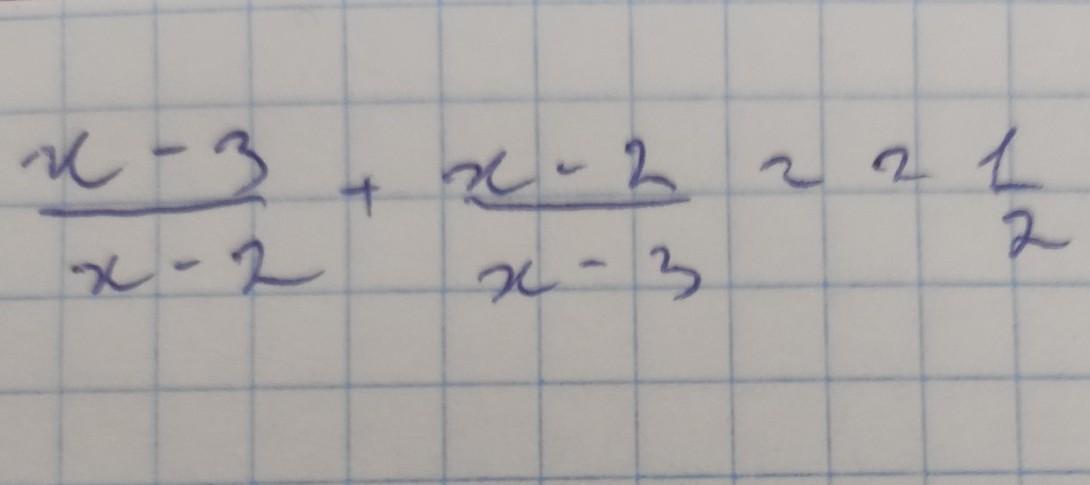 x - 3 / x - 2 + x - 2 / x - 3 = 2 1/2